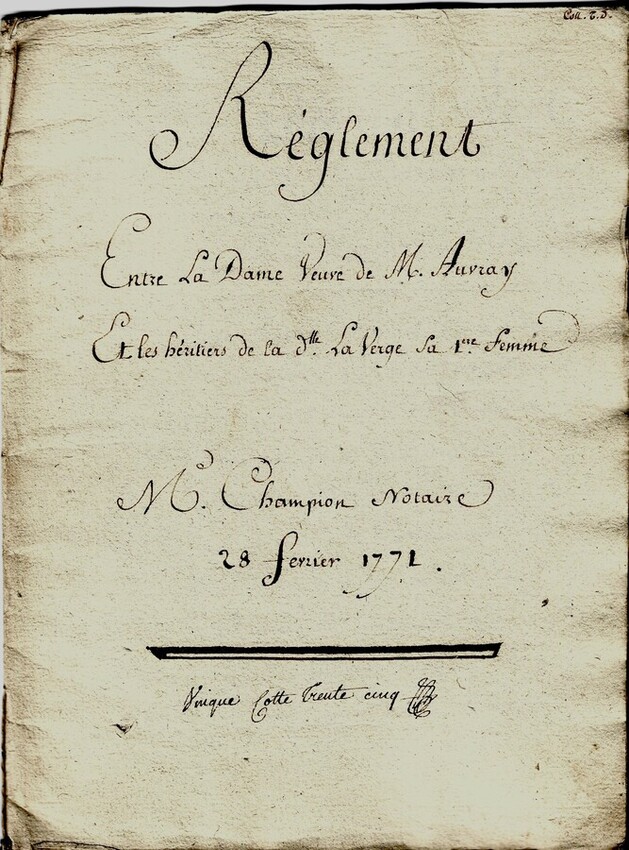 Coll. T.D.
Réglement
Entre La Dame Veuve de M. Auvray
Et les héritiers de la d.lle La Verge Sa 1.ere femme
M.e Champion Notaire
28 fevrier 1771.
Cotte Trente cinq